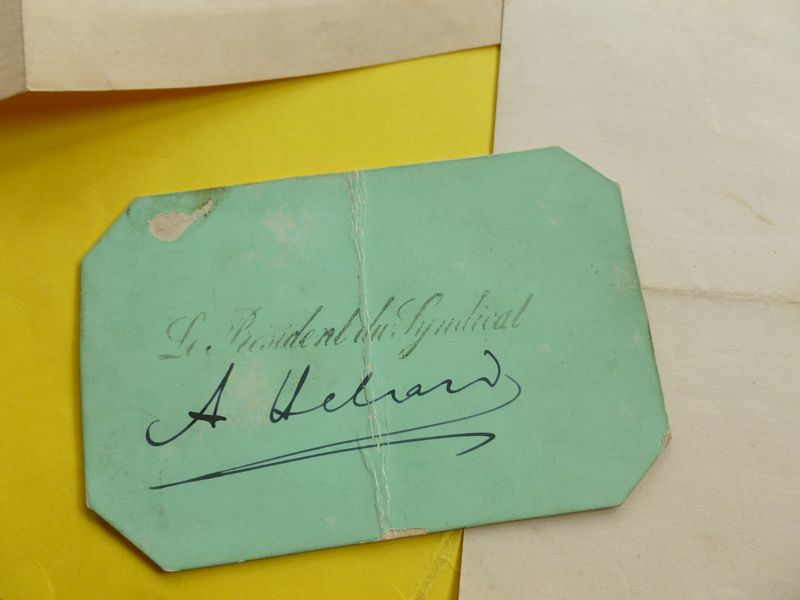 Le Président du Syndicat
A Hébrard